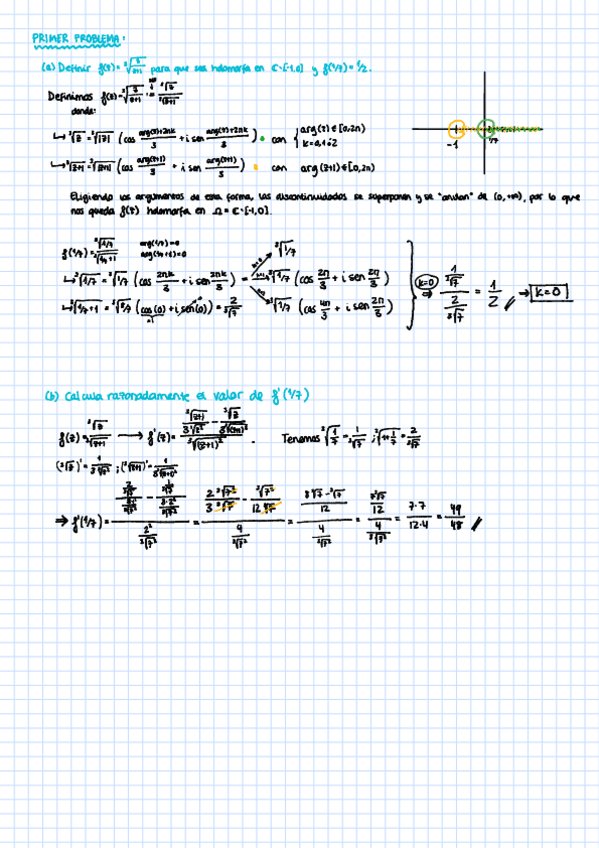 PRIMER PROBLEMA:
(a) Definir f(z)=∛(z/(z+1)) para que sea holomorfa en ℂ\[-1,0] y f(1/7)=1/2.
Definimos f(z)=∛(z/(z+1)) = ∛z/∛(z+1)
donde:
↳ ∛z = ∛|z| (cos (arg(z)+2πk)/3 + i sen (arg(z)+2πk)/3) • con { arg(z)∈[0,2π)
k=0,1 ó 2
↳ ∛(z+1) = ∛|z+1| (cos arg(z+1)/3 + i sen arg(z+1)/3) • con arg(z+1)∈[0,2π)
-1
1/7
Eligiendo los argumentos de esta forma, las discontinuidades se superponen y se "anulan" de (0,+∞), por lo que
nos queda f(z) holomorfa en Ω=ℂ\[-1,0].
f(1/7)=∛(1/7)/∛(1/7+1) arg(1/7)=0
arg(1/7+1)=0
↳ ∛(1/7) = ∛(1/7) (cos 2πk/3 + i sen 2πk/3) =
k=0 ∛(1/7)
k=1 ∛(1/7) (cos 2π/3 + i sen 2π/3)
k=2 ∛(1/7) (cos 4π/3 + i sen 2π/3)
↳ ∛(1/7+1) = ∛(8/7) (cos(0)+i sen(0)) = 2/∛7
k=0 ⇒ (1/∛7)/(2/∛7) = 1/2 → k=0
(b) Calcula razonadamente el valor de f'(1/7)
f(z)=∛z/∛(z+1) → f'(z)= (∛(z+1)/(3∛z²) - ∛z/(3∛(z+1)²))/∛(z+1)² . Tenemos ∛(1/7)=1/∛7 ; ∛(1+1/7)=2/∛7
(∛z)'=1/(3∛z²) ; (∛(z+1))'=1/(3∛(z+1)²)
⇒ f'(1/7)= ((2/∛7)/(3/∛7²) - (1/∛7)/(3·2²/∛7²))/(2²/∛7²) = (2∛7²/(3∛7) - ∛7²/(12∛7))/(4/∛7²) = ((8∛7-∛7)/12)/(4/∛7²) = (7∛7/12)/(4/∛7²) = 7·7/12·4 = 49/48